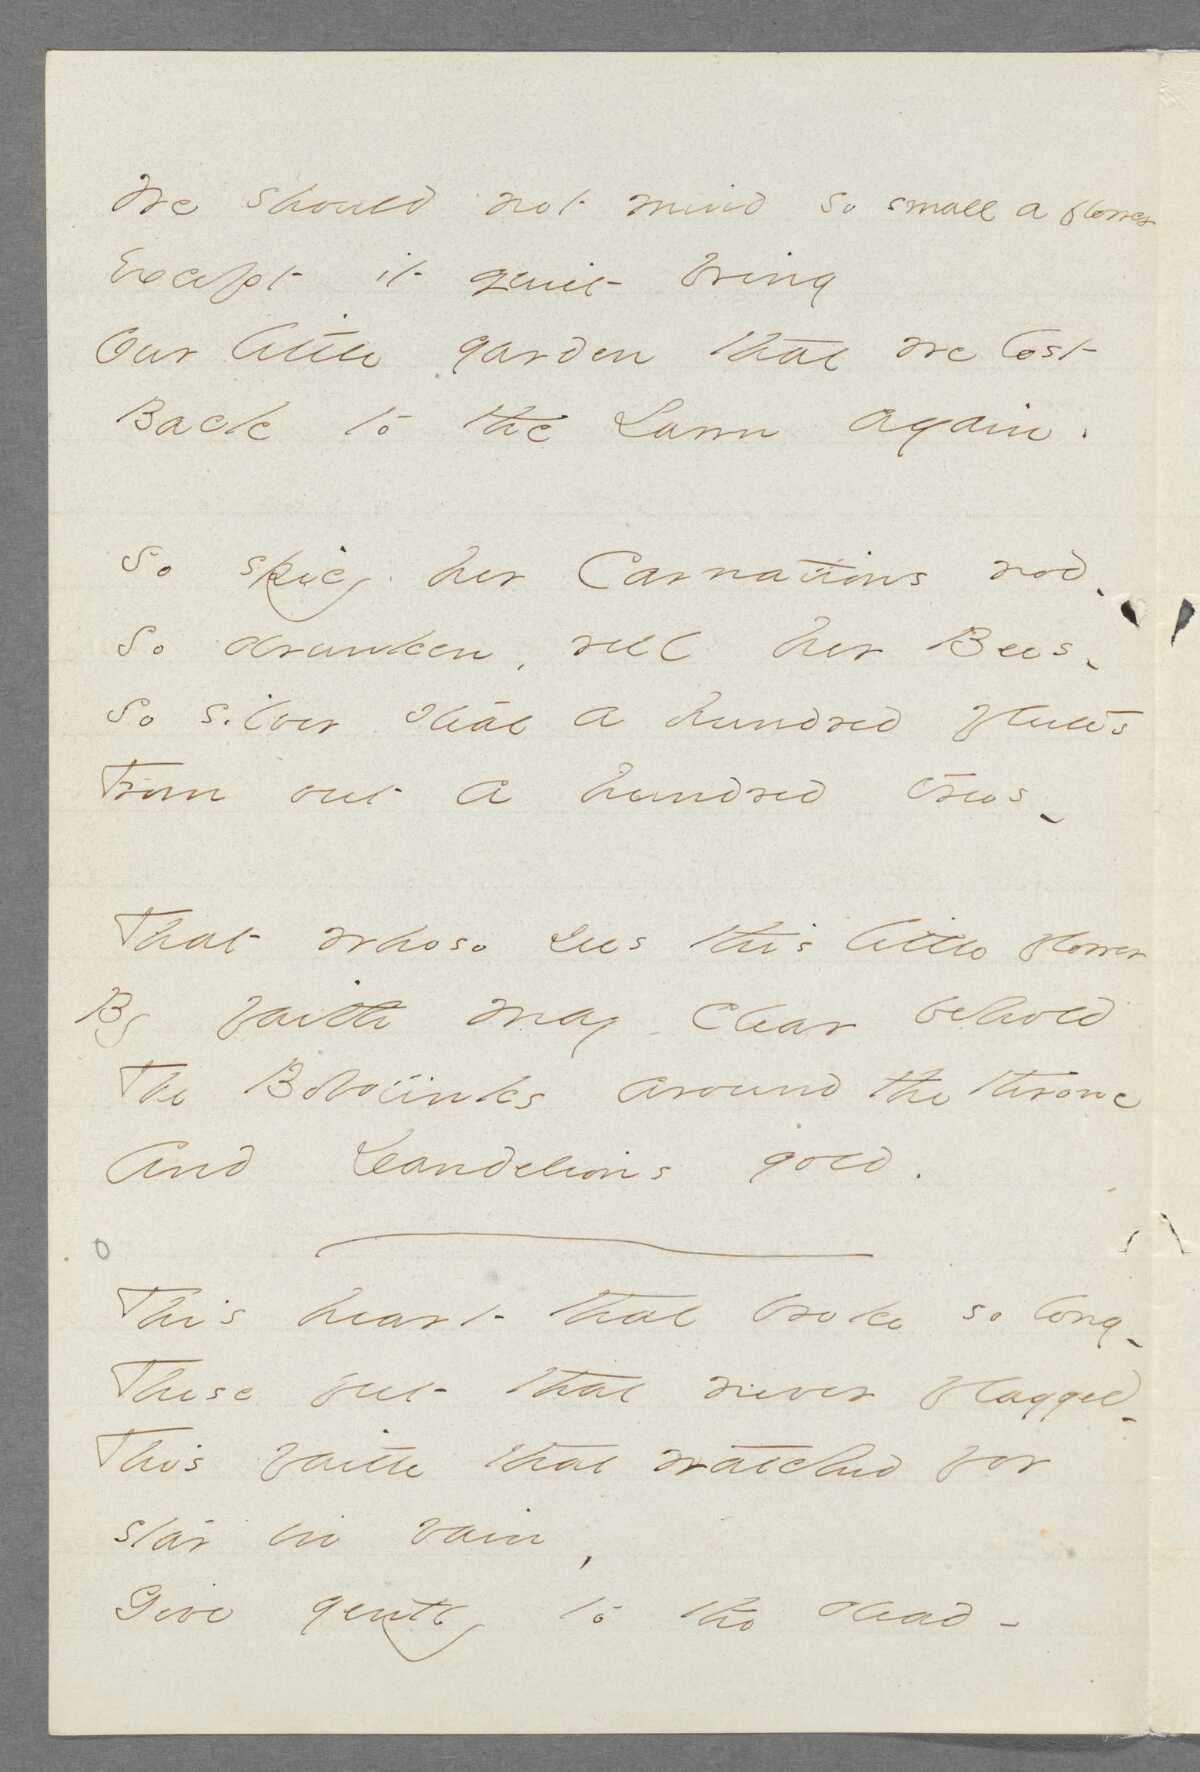 We should not mind so small a flower
Except it quiet bring
Our little garden that we lost
Back to the Lawn again.
So spicy her Carnations nod -
So drunken, reel her Bees -
So silver steal a hundred flutes
From out a hundred trees -
That whoso sees this little flower
By faith may clear behold
The Bobolinks around the throne
And Dandelions gold.
This heart that broke so long -
These feet that never flagged -
This faith that watched for
star in vain,
Give gently to the dead -